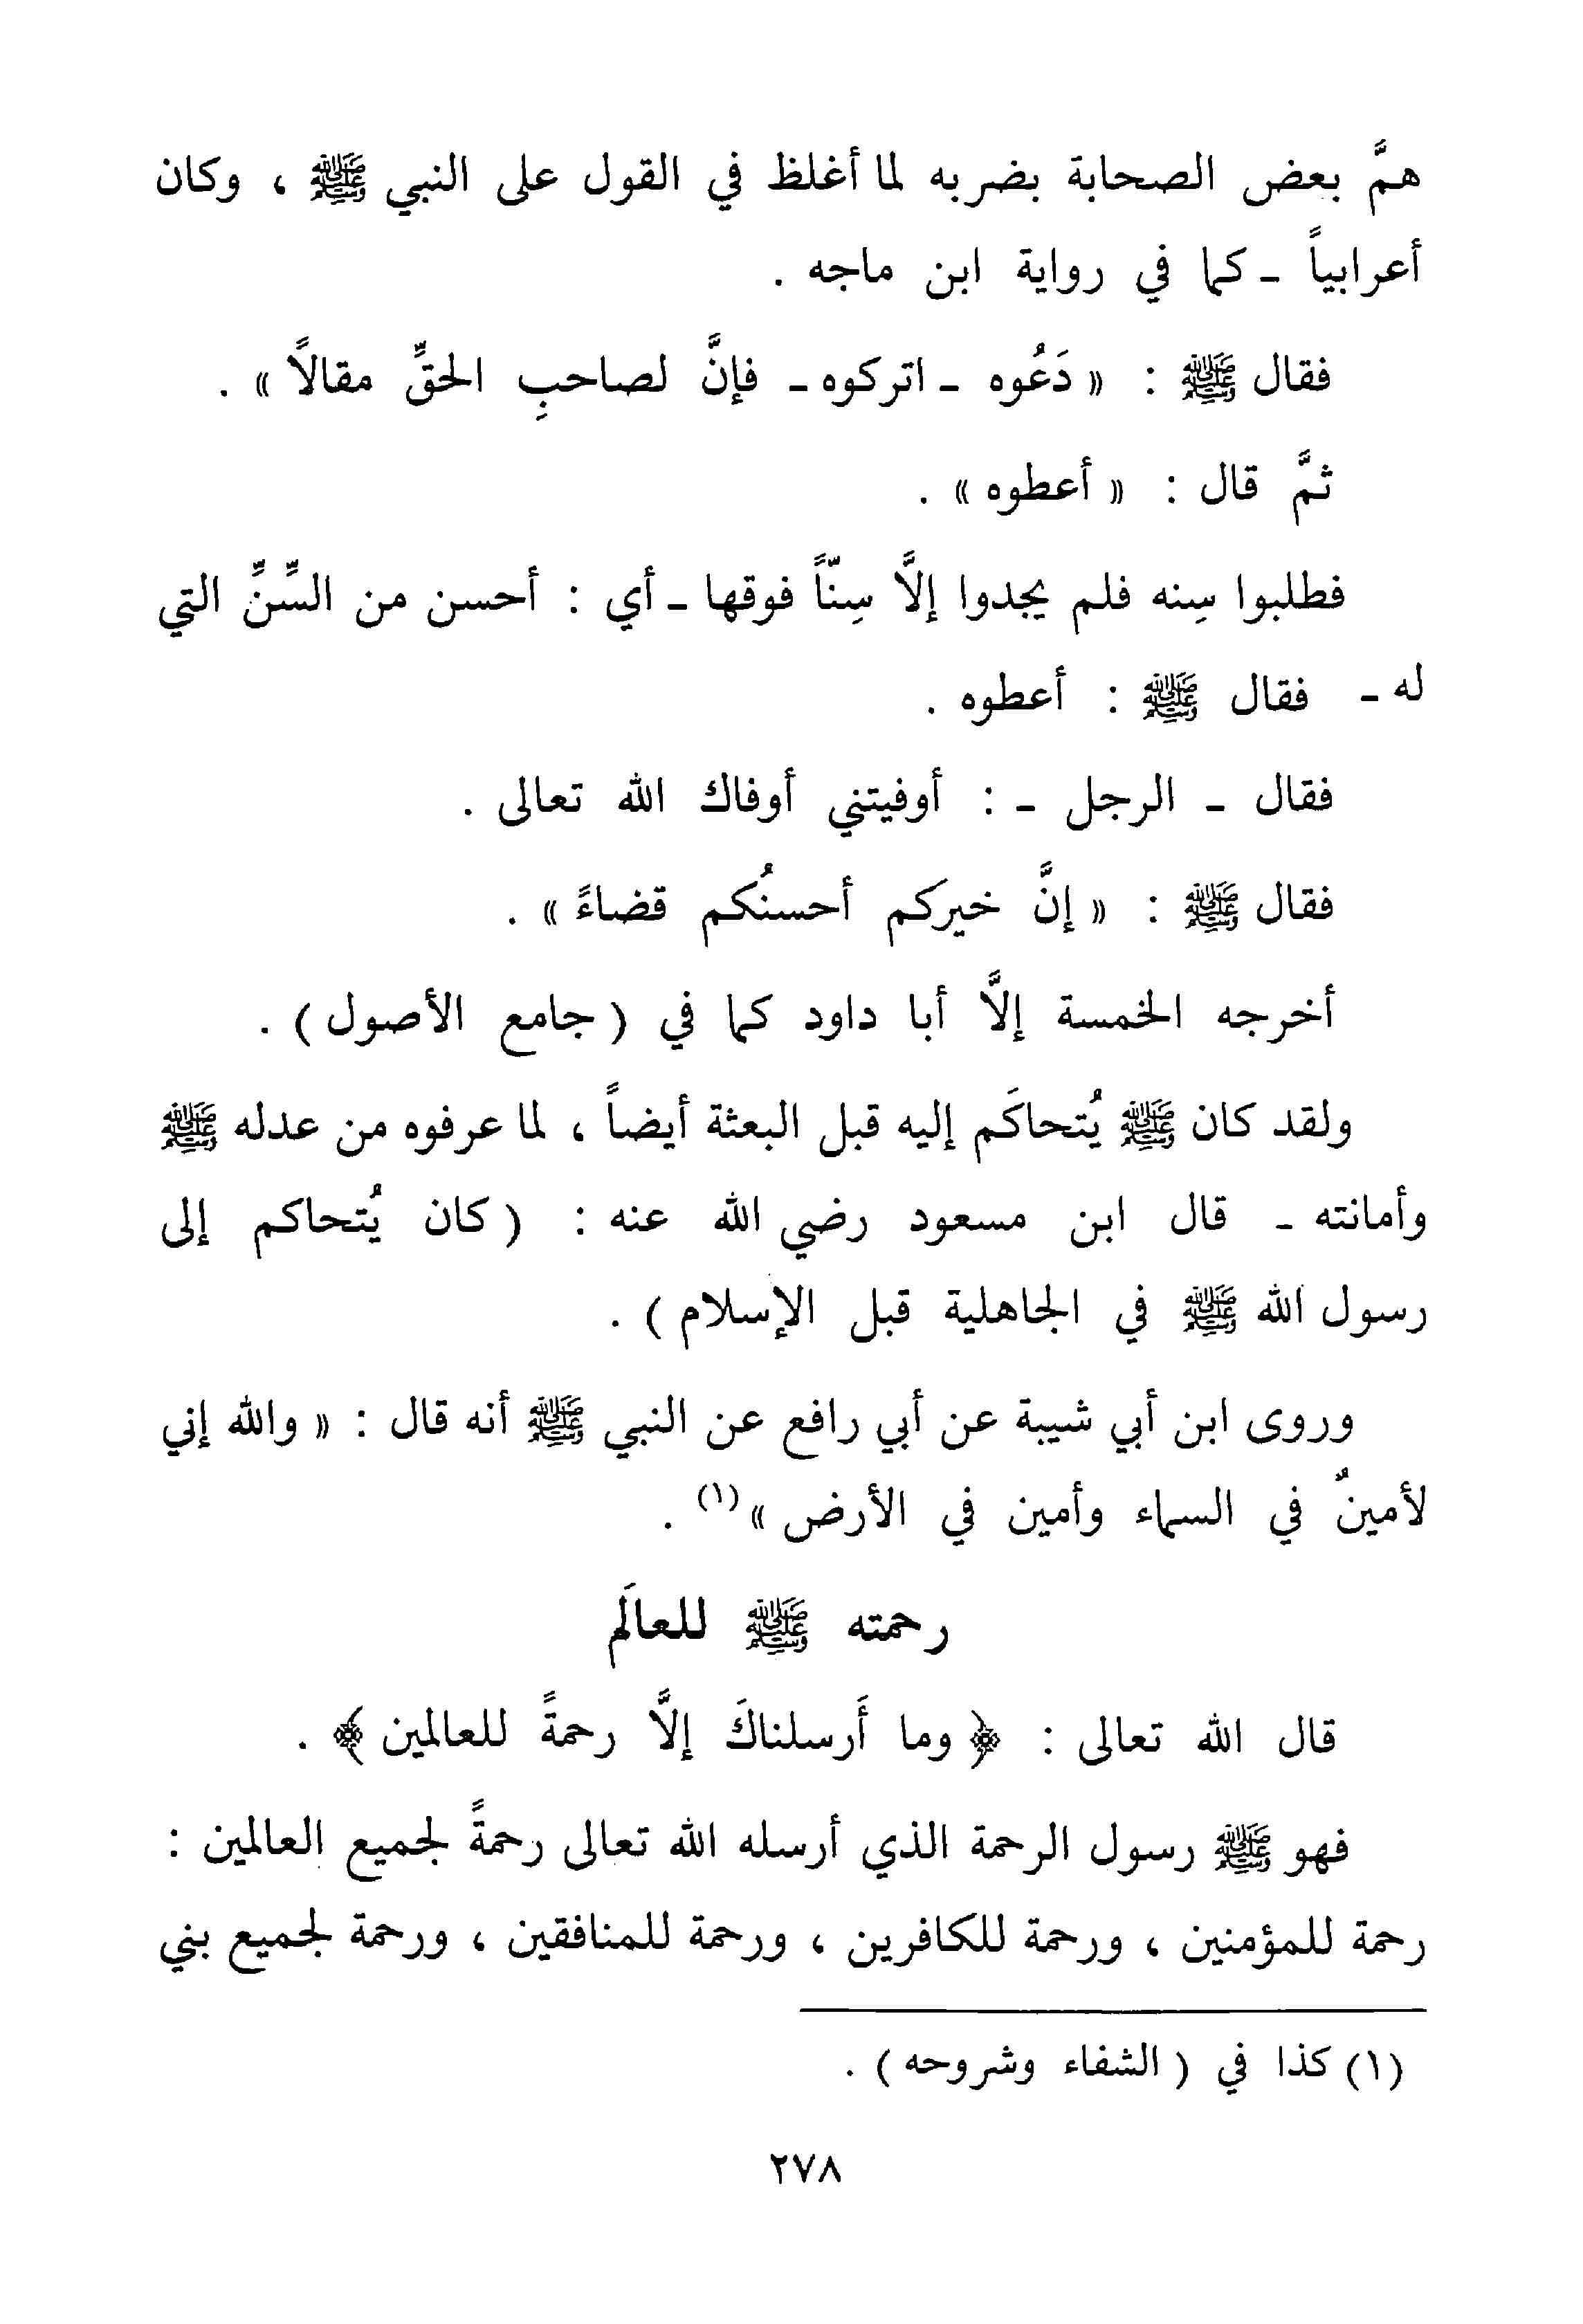 همَّ بعض الصحابة بضربه لما أغلظ في القول على النبي ﷺ ، وكان
أعرابياً ـ كما في رواية ابن ماجه .
فقال ﷺ : « دَعُوه ـ اتركوه ـ فإنَّ لصاحبِ الحقِّ مقالاً » .
ثمَّ قال : « أعطوه » .
فطلبوا سِنه فلم يجدوا إلاَّ سِنّاً فوقها ـ أي : أحسن من السِّنِّ التي
له ـ فقال ﷺ : أعطوه .
فقال ـ الرجل ـ : أوفيتني أوفاك الله تعالى .
فقال ﷺ : « إنَّ خيركم أحسنُكم قضاءً » .
أخرجه الخمسة إلاَّ أبا داود كما في ( جامع الأصول ) .
ولقد كان ﷺ يُتحاكَم إليه قبل البعثة أيضاً ، لما عرفوه من عدله ﷺ
وأمانته ـ قال ابن مسعود رضي الله عنه : ( كان يُتحاكم إلى
رسول الله ﷺ في الجاهلية قبل الإسلام ) .
وروى ابن أبي شيبة عن أبي رافع عن النبي ﷺ أنه قال : « والله إني
لأمينٌ في السماء وأمين في الأرض »(١) .
رحمته ﷺ للعالَم
قال الله تعالى : ﴿ وما أَرسلناكَ إلاَّ رحمةً للعالمين ﴾ .
فهو ﷺ رسول الرحمة الذي أرسله الله تعالى رحمةً لجميع العالمين :
رحمة للمؤمنين ، ورحمة للكافرين ، ورحمة للمنافقين ، ورحمة لجميع بني
(١) كذا في ( الشفاء وشروحه ) .
٢٧٨